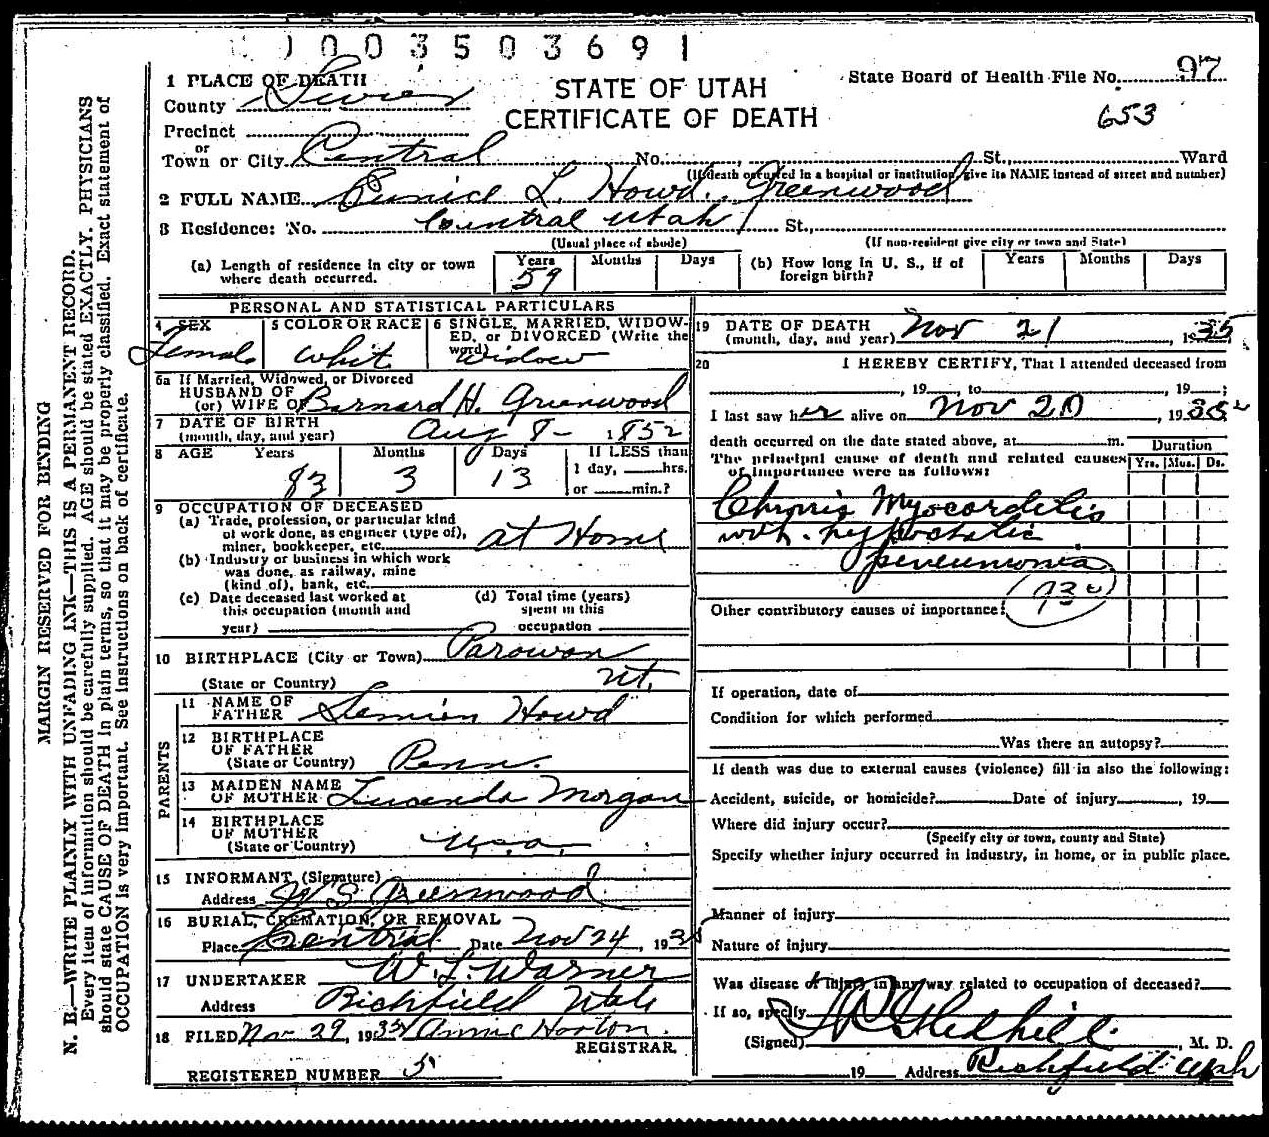 0 0 3 5 0 3 6 9 1
1 PLACE OF DEATH
County Sevier
STATE OF UTAH
CERTIFICATE OF DEATH
State Board of Health File No. 97
653
Precinct
or
Town or City Central No. , St., Ward
(If death occurred in a hospital or institution, give its NAME instead of street and number)
2 FULL NAME Eunice L. Howd Greenwood
3 Residence: No. Central Utah St.,
(Usual place of abode) (If non-resident give city or town and State)
(a) Length of residence in city or town where death occurred. Years 59 Months Days
(b) How long in U. S., if of foreign birth? Years Months Days
PERSONAL AND STATISTICAL PARTICULARS
4 SEX Female
5 COLOR OR RACE Whit
6 SINGLE, MARRIED, WIDOWED, or DIVORCED (Write the word) Widow
6a If Married, Widowed, or Divorced
HUSBAND OF
(or) WIFE OF Barnard H. Greenwood
7 DATE OF BIRTH
(month, day, and year) Aug 8 - 1852
8 AGE Years 83 Months 3 Days 13 If LESS than
1 day, hrs.
or min.?
9 OCCUPATION OF DECEASED
(a) Trade, profession, or particular kind
of work done, as engineer (type of),
miner, bookkeeper, etc. at Home
(b) Industry or business in which work
was done, as railway, mine
(kind of), bank, etc.
(c) Date deceased last worked at
this occupation (month and
year)
(d) Total time (years)
spent in this
occupation
10 BIRTHPLACE (City or Town) Parowan
(State or Country) Ut.
PARENTS
11 NAME OF
FATHER Howd
12 BIRTHPLACE
OF FATHER
(State or Country) Penn.
13 MAIDEN NAME
OF MOTHER Lucenda Morgan
14 BIRTHPLACE
OF MOTHER
(State or Country) U.S.a.
15 INFORMANT (Signature)
Address W S Greenwood
16 BURIAL, CREMATION, OR REMOVAL
Place Central Date Nov 24, 1935
17 UNDERTAKER W. L. Warner
Address Richfield Utah
18 FILED Nov 29, 1935 Annie Horton.
REGISTRAR
REGISTERED NUMBER 5
19 DATE OF DEATH
(month, day, and year) Nov 21, 1935
20 I HEREBY CERTIFY, That I attended deceased from
, 19 to , 19 ;
I last saw her alive on Nov 20, 1935
death occurred on the date stated above, at m.
The principal cause of death and related causes
of importance were as follows:
Duration
Yrs. Mos. Ds.
Chronic Myocarditis
with hypostatic
pneumonia
Other contributory causes of importance:
If operation, date of
Condition for which performed
Was there an autopsy?
If death was due to external causes (violence) fill in also the following:
Accident, suicide, or homicide? Date of injury , 19
Where did injury occur?
(Specify city or town, county and State)
Specify whether injury occurred in industry, in home, or in public place.
Manner of injury
Nature of injury
Was disease of injury in any way related to occupation of deceased?
If so, specify
(Signed) Gledhill, M. D.
19 Address Richfield Utah
MARGIN RESERVED FOR BINDING
N. B.—WRITE PLAINLY WITH UNFADING INK—THIS IS A PERMANENT RECORD.
Every item of information should be carefully supplied. AGE should be stated EXACTLY. PHYSICIANS
should state CAUSE OF DEATH in plain terms, so that it may be properly classified. Exact statement of
OCCUPATION is very important. See instructions on back of certificate.